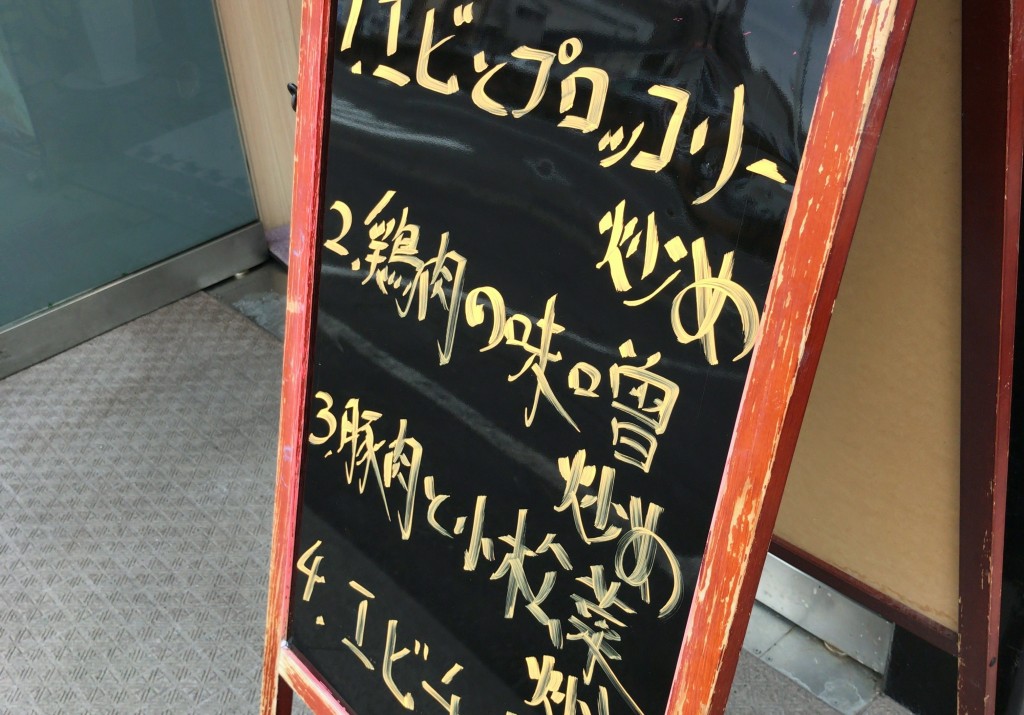 1.エビとプロッコリー
炒め
2.鶏肉の味噌
炒め
3.豚肉と小松菜
炒
4.エビチ